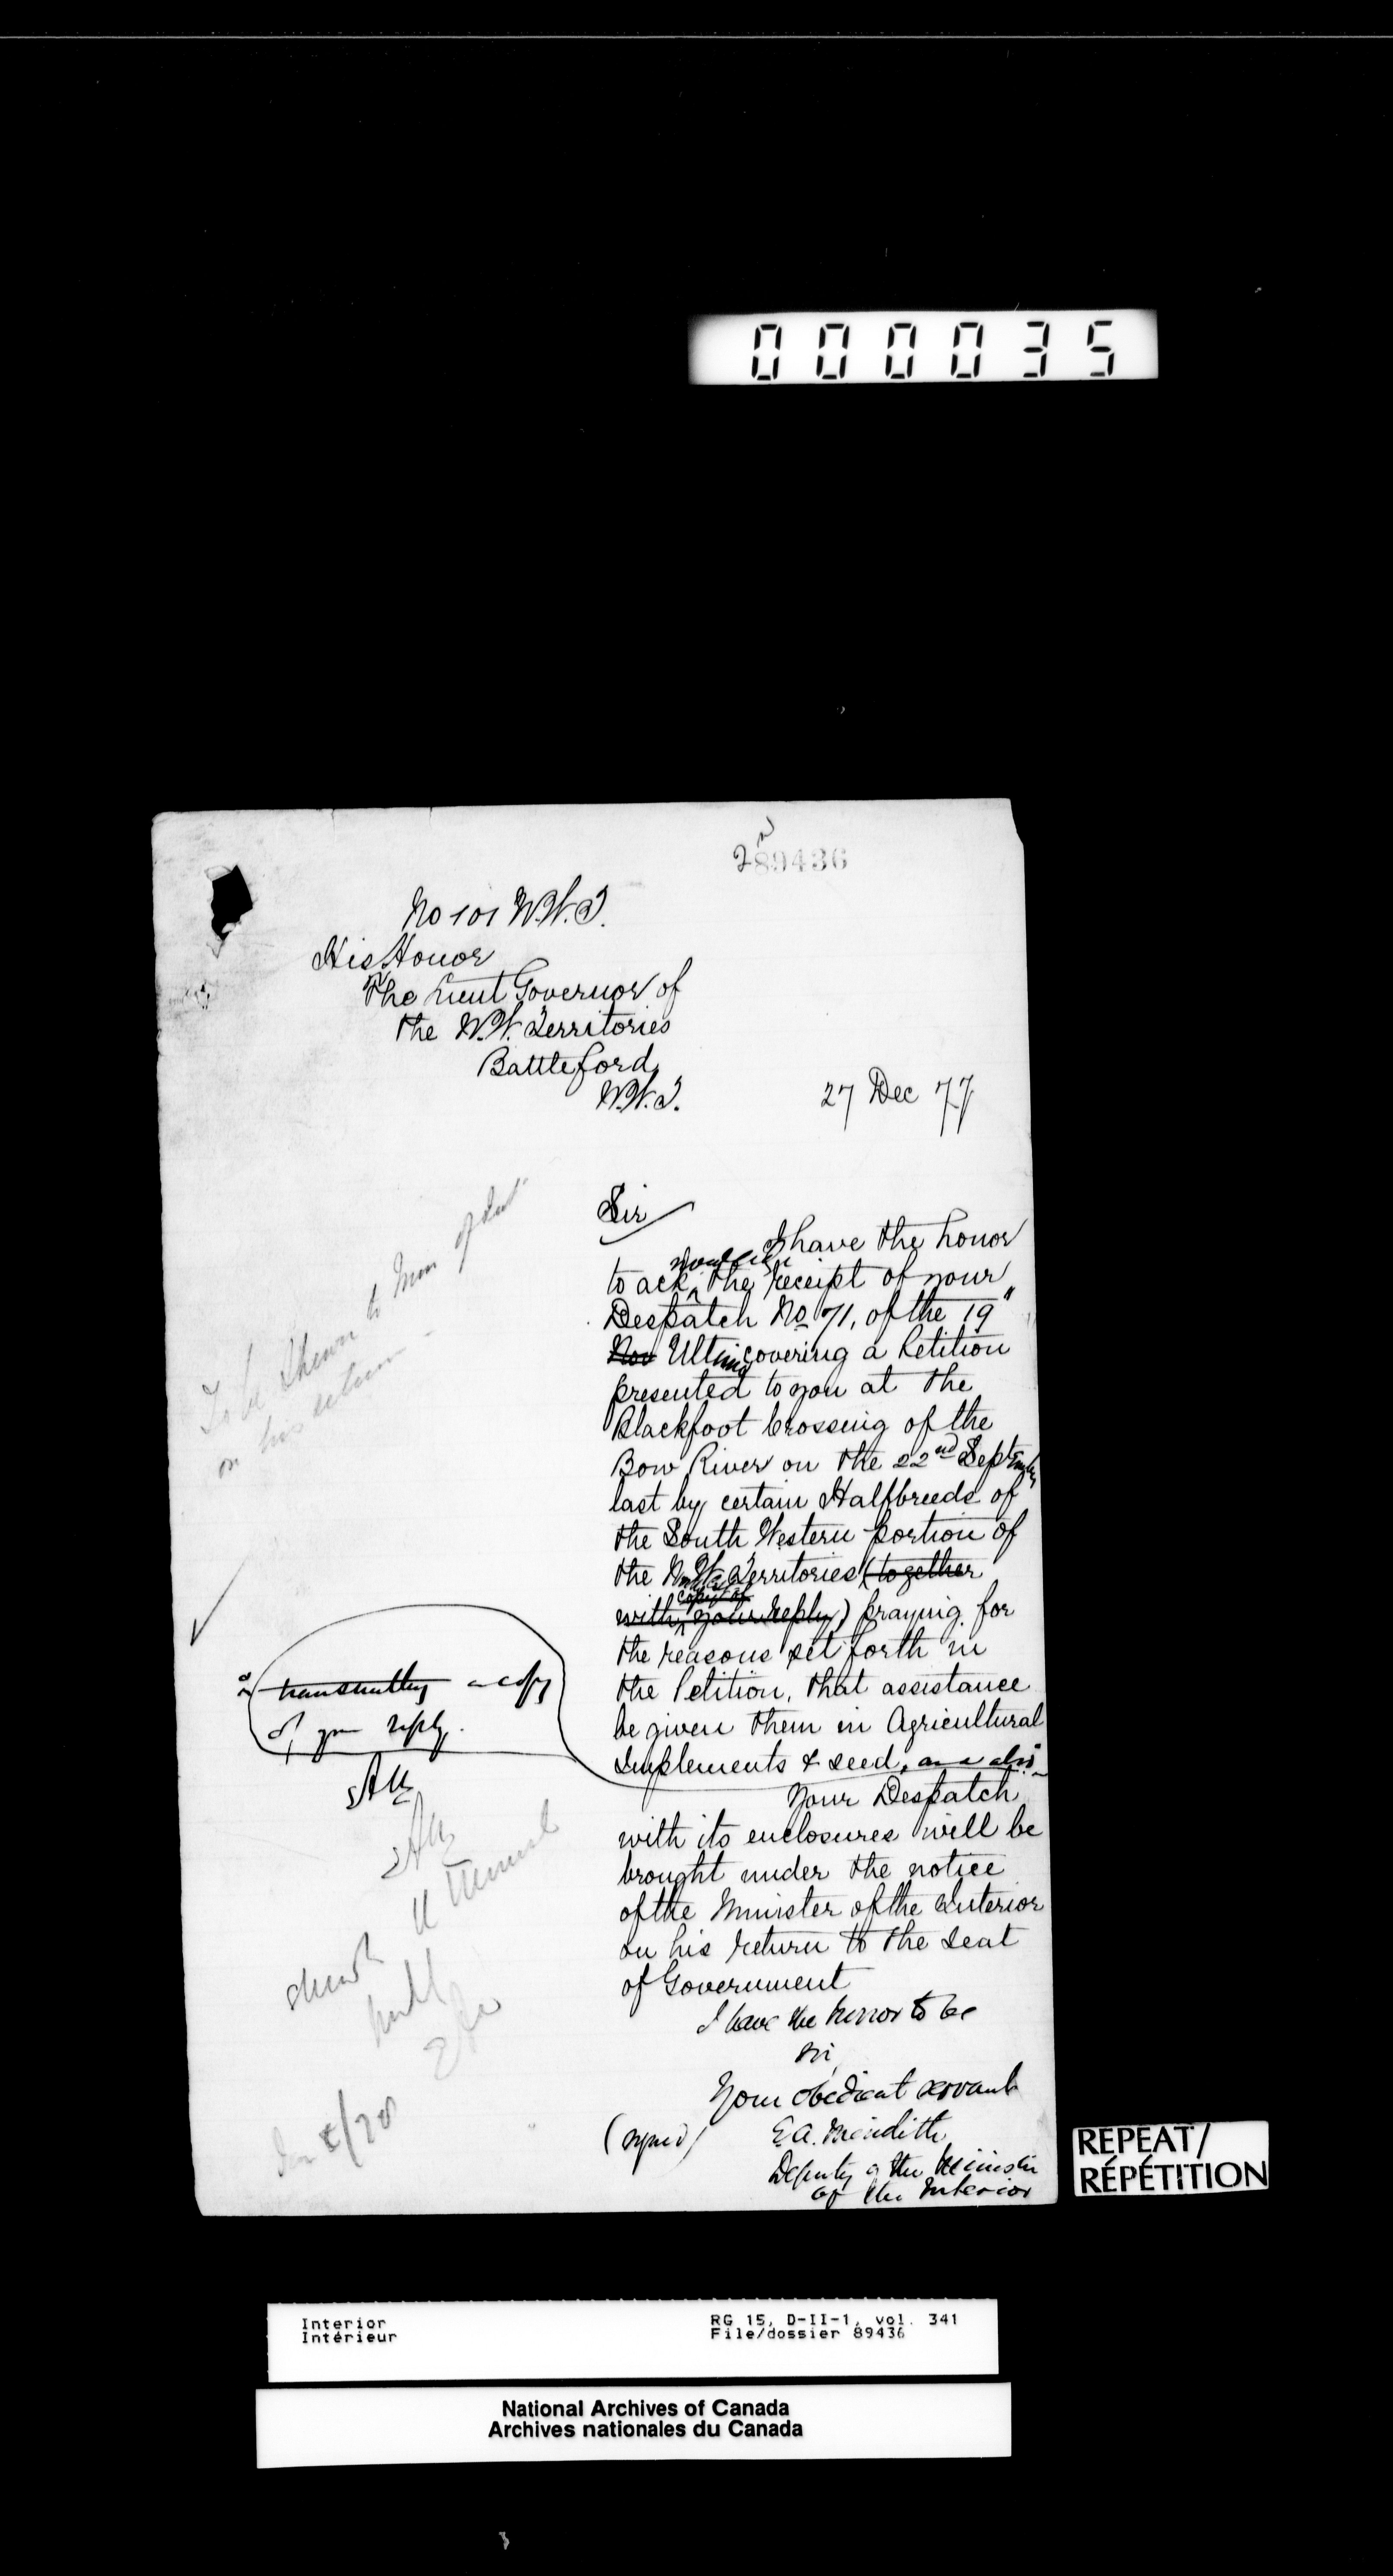 000035
289436
No 101 N.W.T.
His Honor
The Lieut Governor of
the N.W. Territories
Battleford,
N.W.T.
27 Dec 77
Sir
I have the honor
to ack nowledge the receipt of your
Despatch No 71, of the 19"
Nov Ultimo covering a Petition
presented to you at the
Blackfoot Crossing of the
Bow River on the 22nd September
last by certain Halfbreeds of
the South Western portion of
the N.W. Territories (together
with copy of your reply) praying for
the reasons set forth in
the Petition, that assistance
be given them in Agricultural
Implements & seed, and also
transmitting a copy
of your reply.
Your Despatch
with its enclosures will be
brought under the notice
of the Minister of the Interior
on his return to the seat
of Government
I have the honor to be
Sir,
Your obedient servant
(signed) E.A. Meredith
Deputy of the Minister
of the Interior
To be Shewn to Min of Int
on his return
REPEAT/
RÉPÉTITION
Interior
Intérieur
RG 15, D-II-1, vol. 341
File/dossier 89436
National Archives of Canada
Archives nationales du Canada